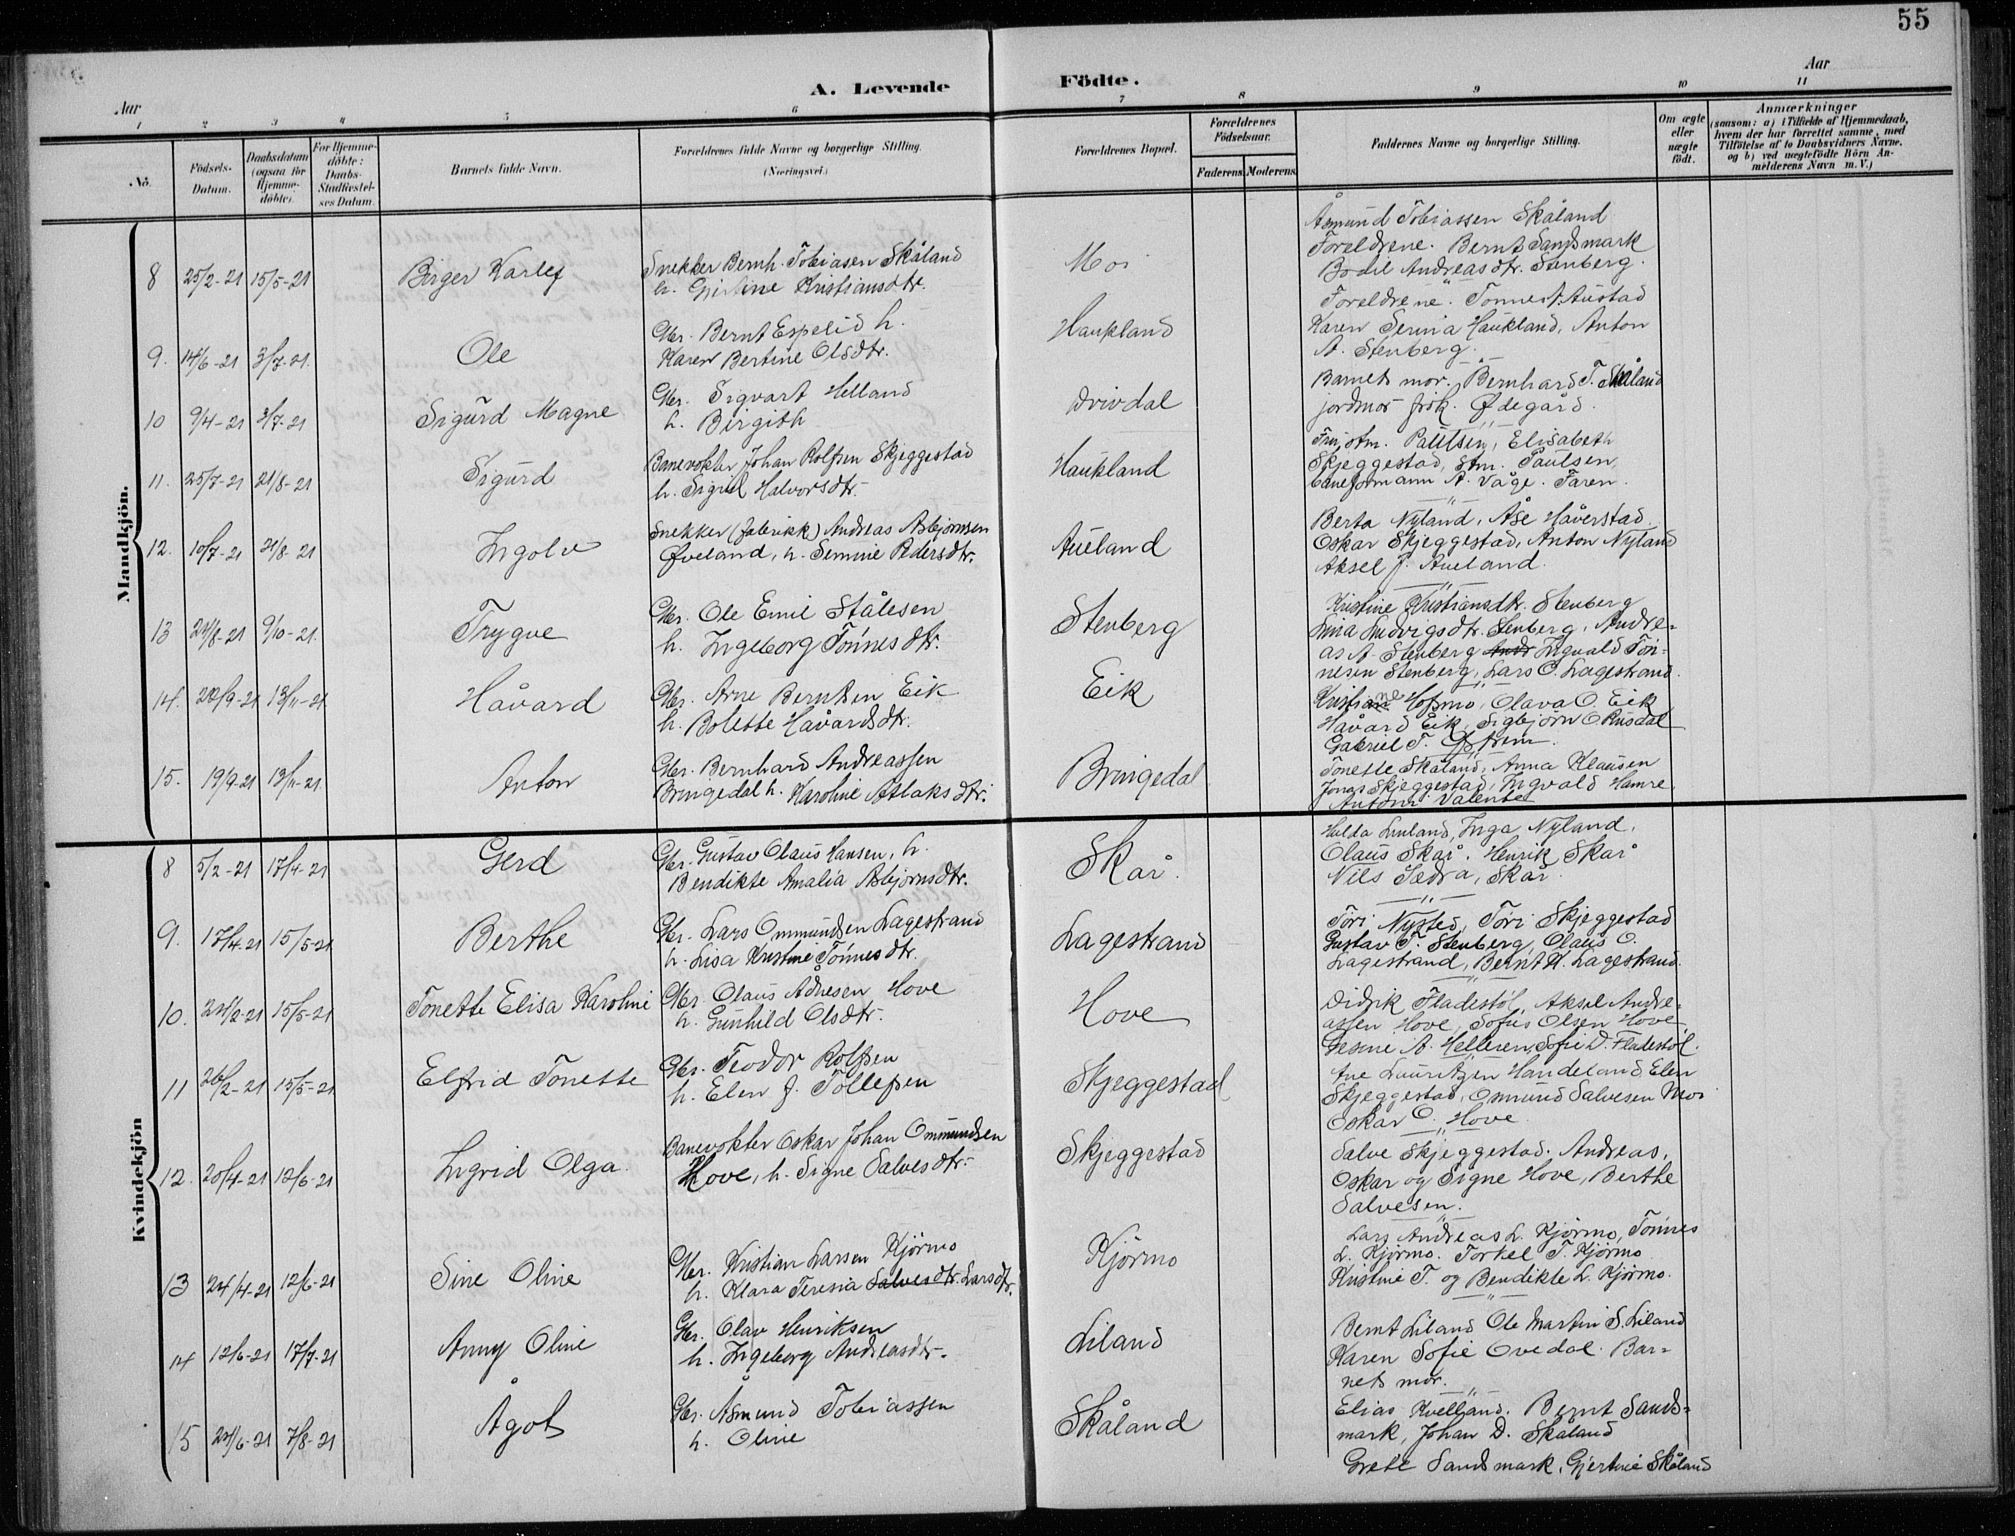 55
Aar
A. Levende Födte.
Aar
1 2 3 4 5 6 7 8 9 10 11
No.
Födsels-Datum.
Daabsdatum (ogsaa for Hjemmedöbte).
For Hjemmedöbte: Daabs-Stadfæstelses Datum.
Barnets fulde Navn.
Forældrenes fulde Navne og borgerlige Stilling.
(Næringsvei.)
Forældrenes Bopæl.
Forældrenes Födselsaar.
Faderens. Moderens.
Faddernes Navne og borgerlige Stilling.
Om ægte eller uægte födt.
Anmærkninger
(saasom: a) i Tilfælde af Hjemmedaab, hvem der har forrettet samme, med Tilföielse af to Daabsvidners Navne, og b) ved uægtefödte Börn Anmelderens Navn m. V.)
Mandkjön.
8 25/2-21 15/5-21 Birger Karlef
Snekker Bernh. Tobiasen Skåland
h. Kristiansdtr.
Moi
Åsmund Tobiassen Skåland
Foreldrene. Bernt Sandsmark
Bodil Andreasdtr. Stenberg.
9. 14/6-21 3/7-21. Ole
Gbr. Bernt Espelid h.
Karen Bertine Olsdtr.
Haukland
Foreldrene. Tønnes Austad
Karen Serina Haukland, Anton
A. Stenberg.
10 9/4-21 3/7-21 Sigurd Magne
Gbr. Sigvart Helland
h. Birgith
Drivdal
Barnets mor. Bernhard T. Skåland
jordmor frøk. Ødegård.
11. 25/7-21 21/8-21 Sigurd
Banevokter Johan Rolfsen Skjeggestad
h. Sigrid Halvorsdtr.
Haukland
Fru stm. Paulsen, Elisabeth
Skjeggestad, stm. Paulsen,
baneformann A. Våge. Faren.
12. 10/7-21 21/8-21 Ingolv
Snekker (fabrikk) Andreas Asbjørnsen
Øveland, h. Semine Pedersdtr.
Aueland
Berta Nyland, Åse Håverstad
Oskar Skjeggestad, Anton Nyland
Aksel J. Aueland.
13 21/8-21 9/10-21. Trygve
Gbr. Ole Emil Stålesen
h. Ingeborg Tønnesdtr.
Stenberg
Kristine Kristiansdtr. Stenberg
Lina Ludvigsdtr. Stenberg. Andre-
as A. Stenberg Andr Ingvald Tøn-
nesen Stenberg, Lars O. Lagestrand.
14. 22/9-21 13/11-21 Håvard
Gbr. Arne Berntsen Eik
h. Bolette Håvardsdtr.
Eik
Kristiane Hofsmo, Olava O. Eik
Håvard Eik, Sigbjørn O Rusdal
Gabriel T.
15. 19/9-21 13/11-21. Anton
Gbr. Bernhard Andreassen
Bringedal h. Karoline Atlaksdtr.
Bringedal
Tonette Skåland, Anna Klausen
Jonas Skjeggestad, Ingvald Hamre,
Antoni Valentes
Kvindekjön
8 5/2-21 17/4-21 Gerd
Gbr. Gustav Olaus Hansen, h.
Bendikte Amalia Asbjørnsdtr.
Skår.
Hulda Liuland, Inga Nyland,
Olaus Skår. Henrik Skår
Nils Sædra, Skår.
9. 17/4-21 15/5-21 Berthe
Gbr. Lars Ommundsen Lagestrand
h. Lisa Kristine Tønnesdtr.
Lagestrand
Tori Nysted, Tori Skjeggestad
Gustav T. Stenberg, Olaus O.
Lagestrand, Bernt H. Lagestrand.
10. 24/2-21 15/5-21 Tonette Elisa Karoline
Gbr. Olaus Ådnesen Hove
h. Gunhild Olsdtr.
Hove
Didrik Fladestøl, Aksel Andre-
assen Hove, Sofus Olsen Hove,
Gesine A. Helleren, Sofie D. Fladestøl.
11 26/2-21 15/5-21 Elfrid Tonette
Gbr. Teodor Rolfsen
h. Elen J. Tollefsen
Skjeggestad
Ane Lauritzen Handeland, Elen
Skjeggestad, Omund Salvesen Moi
Oskar O. Hove
12. 20/4-21 12/6-21 Ingrid Olga.
Banevokter Oskar Johan Ommundsen
Hove, h. Signe Salvesdtr.
Skjeggestad
Salve Skjeggestad. Andreas,
Oskar og Signe Hove, Berthe
Salvesen.
13 24/4-21 12/6-21 Sine Oline
Gbr. Kristian Larsen Kjørmo
h. Klara Teresia Salvesdtr. Larsdtr.
Kjørmo
Lars Andreas L. Kjørmo, Tønnes
L. Kjørmo. Torkel T. Kjørmo
Kristine T. og Bendikte L. Kjørmo.
14 12/6-21 17/7-21 Anny Oline
Gbr. Olav Henriksen
h. Ingeborg Andreasdtr.
Liland
Bernt Liland Ole Martin S. Liland
Karen Sofie Ovedal. Bar-
nets mor.
15 22/6-21 7/8-21 Ågot
Gbr. Åsmund Tobiassen
h. Oline
Skåland
Elias Kvelland. Bernt Sands-
mark, Johan D. Skåland
Grete Sandsmark, Gjertine Skåland